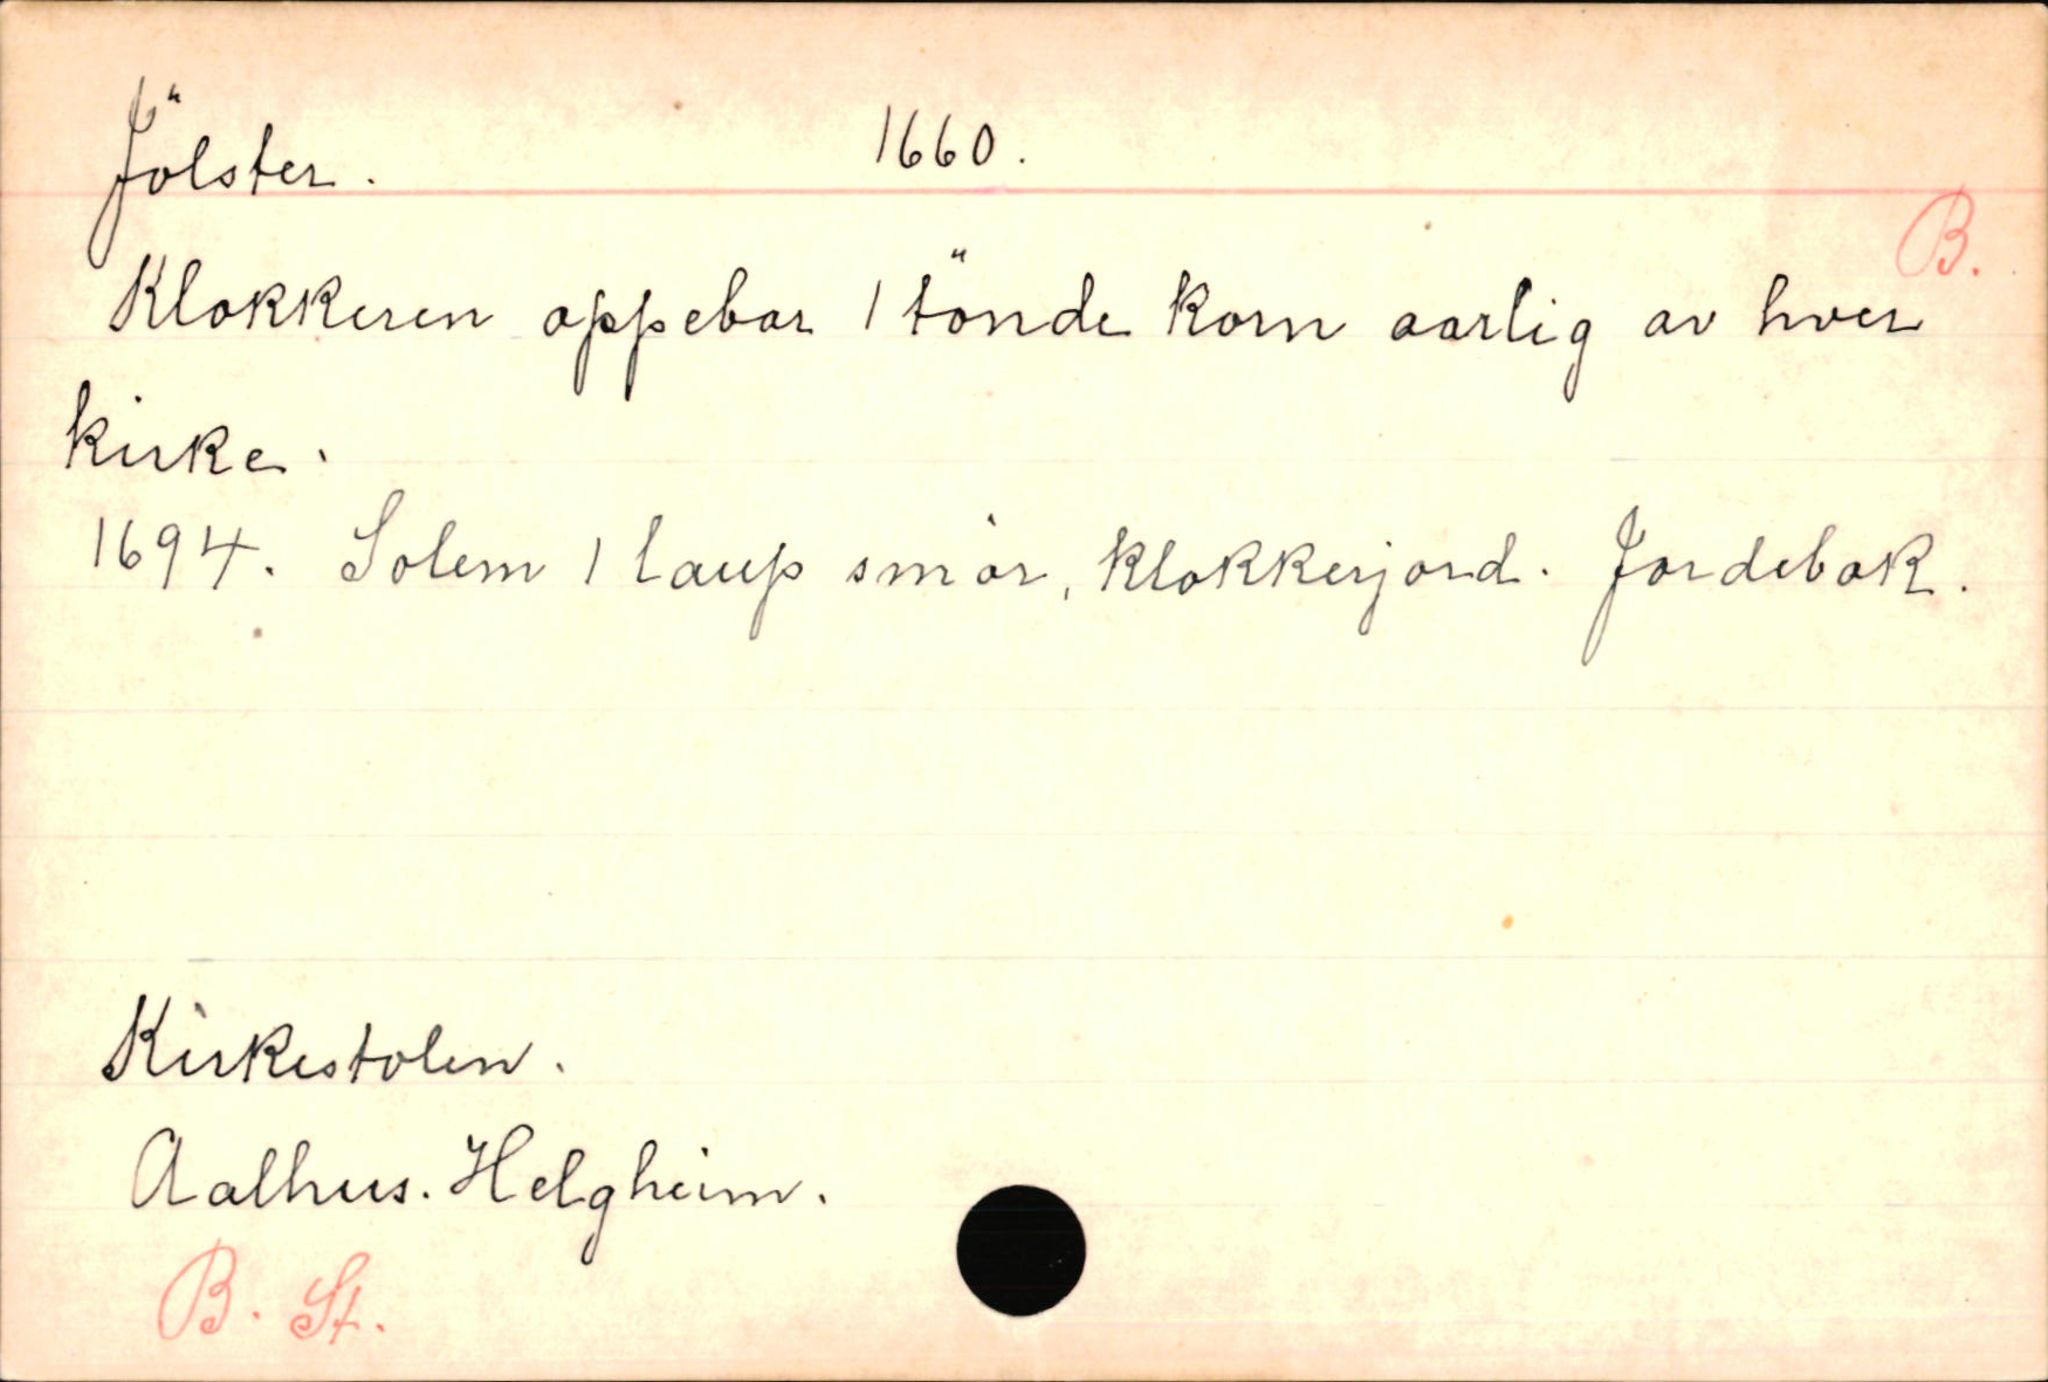 Jölster. 1660.
B.
Klokkeren oppebar 1 tönde korn aarlig av hver
kirke.
1694. Solem 1 laup smör, klokkerjord. Jordebok.
Kirkestolen.
Aalhus. Helgheim.
B. St.